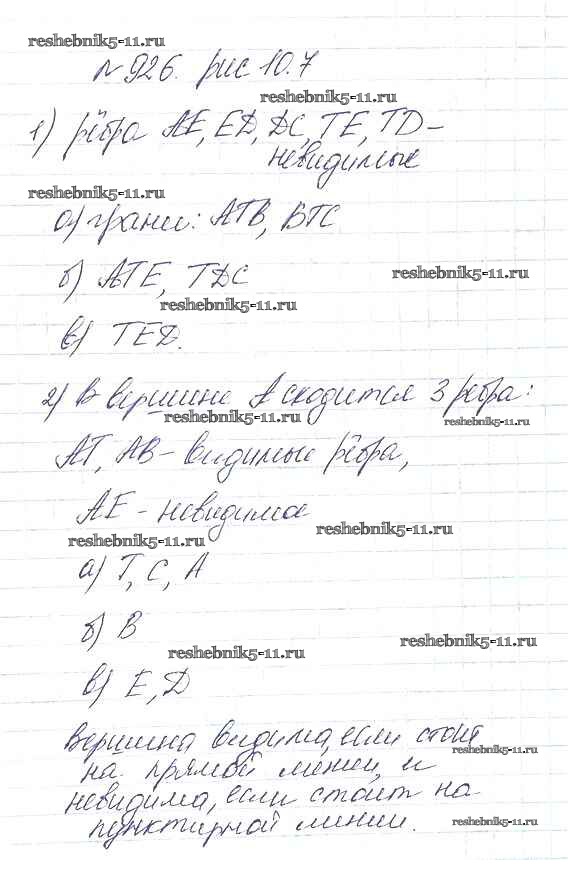 reshebnik5-11.ru
№926. рис 10.7
reshebnik5-11.ru
1) рёбра AE, ED, DC, TE, TD –
невидимые
reshebnik5-11.ru
а) грани: ATB, BTC
б) ATE, TDC
reshebnik5-11.ru
reshebnik5-11.ru
в) TED.
2) В вершине A сходится 3 ребра:
reshebnik5-11.ru
reshebnik5-11.ru
AT, AB – видимые рёбра,
AE – невидимое
reshebnik5-11.ru
reshebnik5-11.ru
а) T, C, A
б) B
reshebnik5-11.ru
reshebnik5-11.ru
в) E, D
Вершина видима, если стоит
reshebnik5-11.ru
на прямой линии, и
невидима, если стоит на
пунктирной линии.
reshebnik5-11.ru